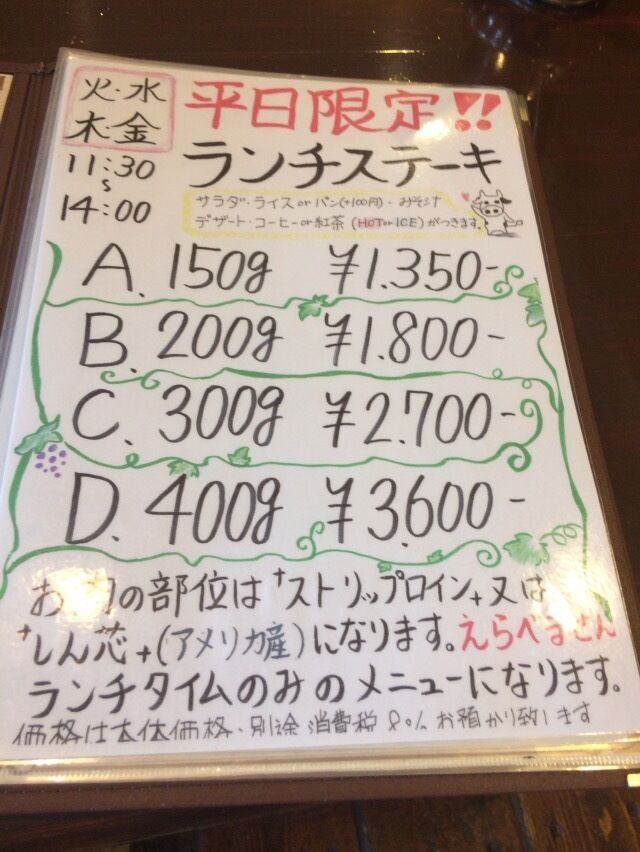 火・水
木・金
11:30
〜
14:00
平日限定!!
ランチステーキ
サラダ・ライス or パン(+100円)・みそ汁
デザート・コーヒー or 紅茶 (HOT or ICE) がつきます。
A. 150g ¥1.350-
B. 200g ¥1.800-
C. 300g ¥2.700-
D. 400g ¥3.600-
お肉の部位は+ストリップロイン+又は
+しん芯+(アメリカ産)になります。えらべません
ランチタイムのみのメニューになります。
価格は本体価格・別途消費税8%お預かり致します